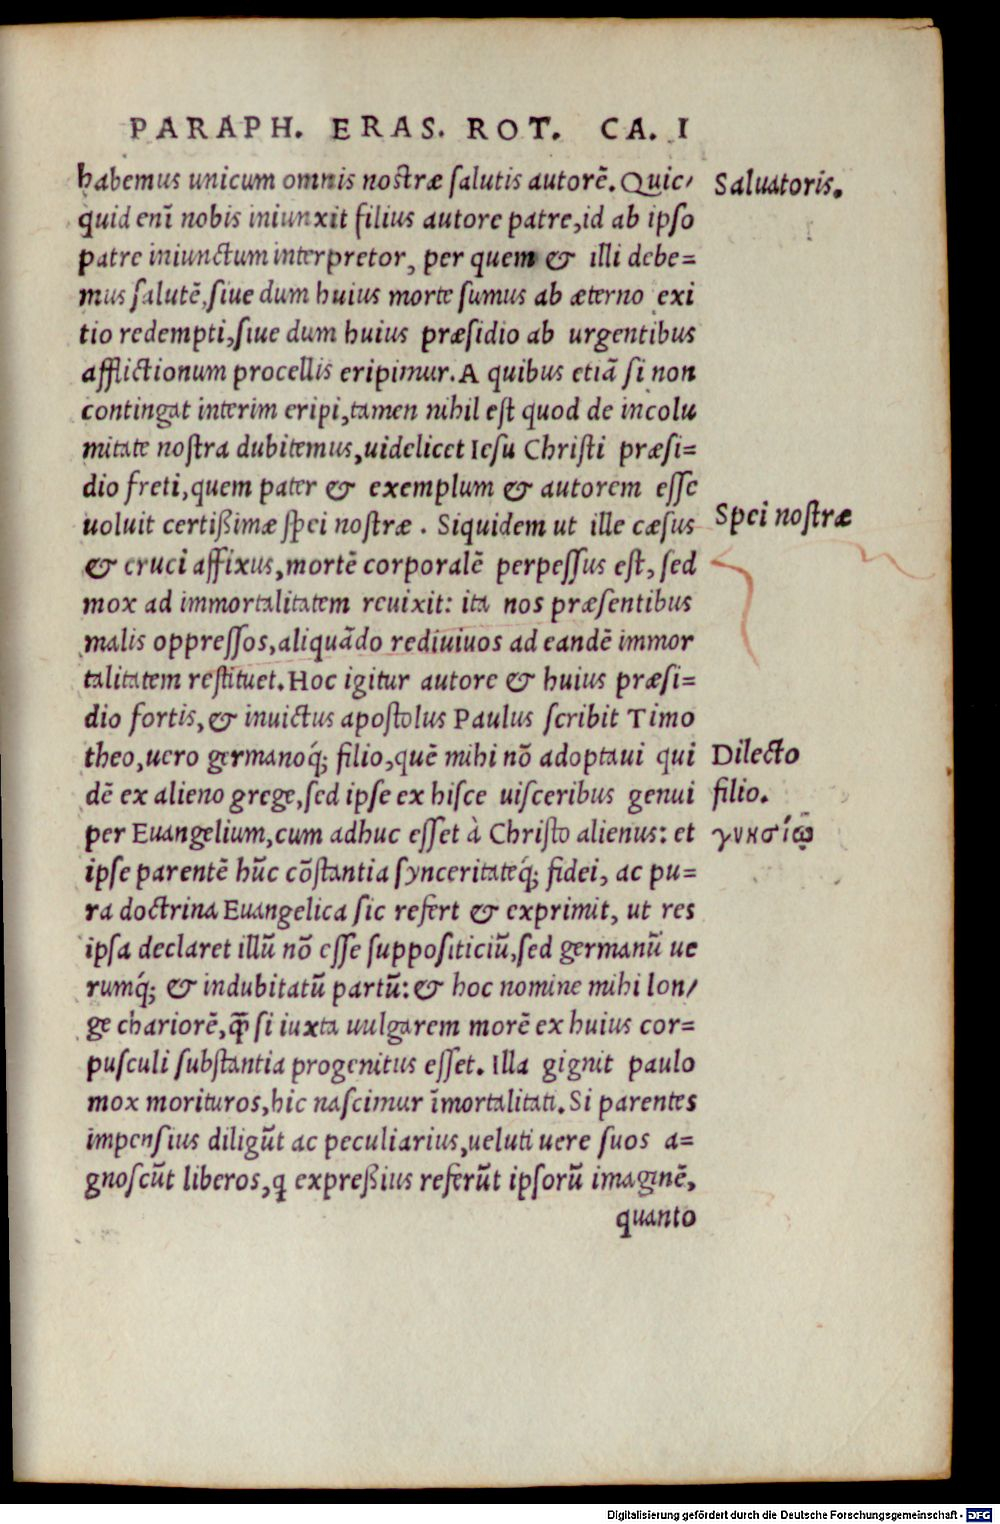 PARAPH. ERAS. ROT. CA. I
habemus unicum omnis nostræ salutis autorē. Quic/
Saluatoris.
quid enī nobis iniunxit filius autore patre, id ab ipso
patre iniunctum interpretor, per quem & illi debe=
mus salutē, siue dum huius morte sumus ab æterno exi
tio redempti, siue dum huius præsidio ab urgentibus
afflictionum procellis eripimur. A quibus etiā si non
contingat interim eripi, tamen nihil est quod de incolu
mitate nostra dubitemus, uidelicet Iesu Christi præsi=
dio freti, quem pater & exemplum & autorem esse
uoluit certißimæ spei nostræ. Siquidem ut ille cæsus
Spei nostræ
& cruci affixus, mortē corporalē perpessus est, sed
mox ad immortalitatem reuixit: ita nos præsentibus
malis oppressos, aliquādo rediuiuos ad eandē immor
talitatem restituet. Hoc igitur autore & huius præsi=
dio fortis, & inuictus apostolus Paulus scribit Timo
theo, uero germanoq́; filio, quē mihi nō adoptaui qui
Dilecto
dē ex alieno grege, sed ipse ex hisce uisceribus genui
filio.
per Euangelium, cum adhuc esset à Christo alienus: et
γνησίῳ
ipse parentē hūc cōstantia synceritateq́; fidei, ac pu=
ra doctrina Euangelica sic refert & exprimit, ut res
ipsa declaret illū nō esse suppositiciū, sed germanū ue
rumq́; & indubitatū partū: & hoc nomine mihi lon/
ge chariorē, q̄ꝫ si iuxta uulgarem morē ex huius cor=
pusculi substantia progenitus esset. Illa gignit paulo
mox morituros, hic nascimur īmortalitati. Si parentes
impensius diligūt ac peculiarius, ueluti uere suos a=
gnoscūt liberos, ꝗ expreßius referūt ipsorū imaginē,
quanto
Digitalisierung gefördert durch die Deutsche Forschungsgemeinschaft - DFG